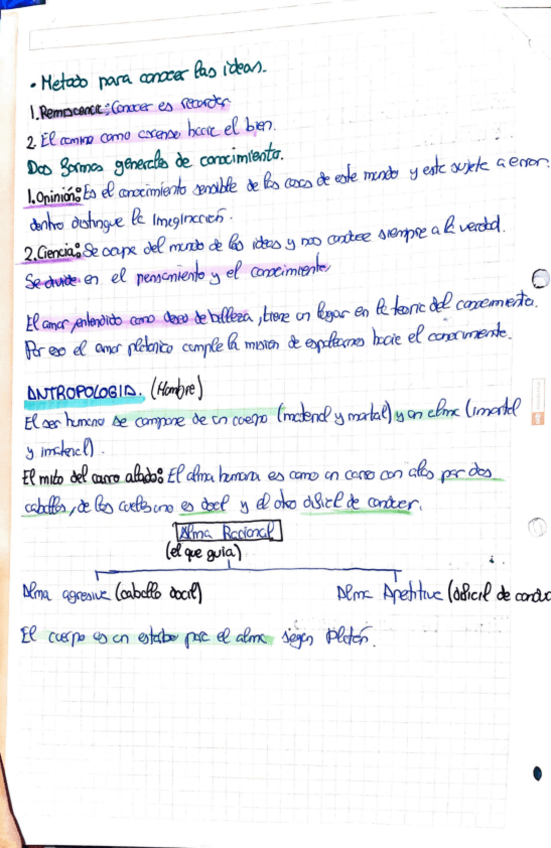 • Metodo para conocer las ideas.
1. Reminiscencia: Conocer es recordar
2. El camino como ascenso hacia el bien.
Dos formas generales de conocimiento.
1. Opinión: Es el conocimiento sensible de las cosas de este mundo y este sujeto a error.
dentro distingue la Imaginación.
2. Ciencia: Se ocupa del mundo de las ideas y nos conduce siempre a la verdad.
Se divide en el pensamiento y el conocimiento
El amor, entendido como deseo de belleza, tiene un lugar en la teoria del conocimiento.
Por eso el amor platonico cumple la mision de espolearnos hacia el conocimiento.
ANTROPOLOGIA. (Hombre)
El ser humano se compone de un cuerpo (material y mortal) y un alma (inmortal
y imaterial).
El mito del carro alado: El alma humana es como un carro con alas por dos
caballos, de los cuales uno es docil y el otro dificil de conducir.
Alma Racional
(el que guia)
Alma agresiva (caballo docil) Alma Apetitiva (dificil de conduc
El cuerpo es un estorbo para el alma segun Platón.